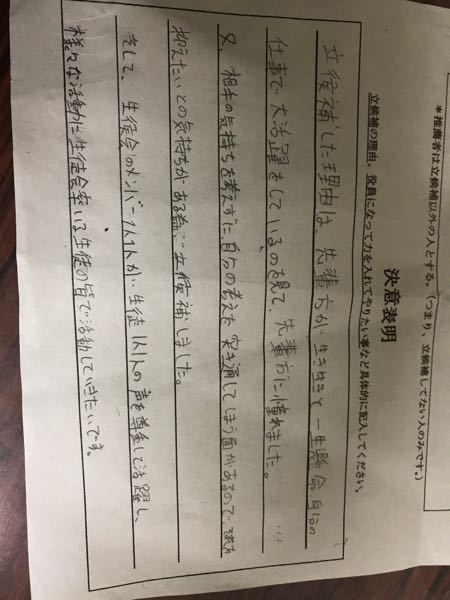 *推薦者は立候補以外の人とする。(つまり、立候補してない人のみです。)
決意表明
立候補の理由、役員になって力を入れてやりたい事など具体的に記入してください。
立候補した理由は、先輩方が生き生きと一生懸命、自分の
仕事で大活躍をしているのを見て、先輩方に憧れました。
又、相手の気持ちを考えずに、自分の考えを突き通してしまう面があるので、
抑えたいとの気持ちがある為、立候補しました。
そして、生徒会のメンバー1人1人が、生徒1人1人の声を尊重して活躍し、
様々な活動に生徒会率いる生徒の皆で活動していきたいです。